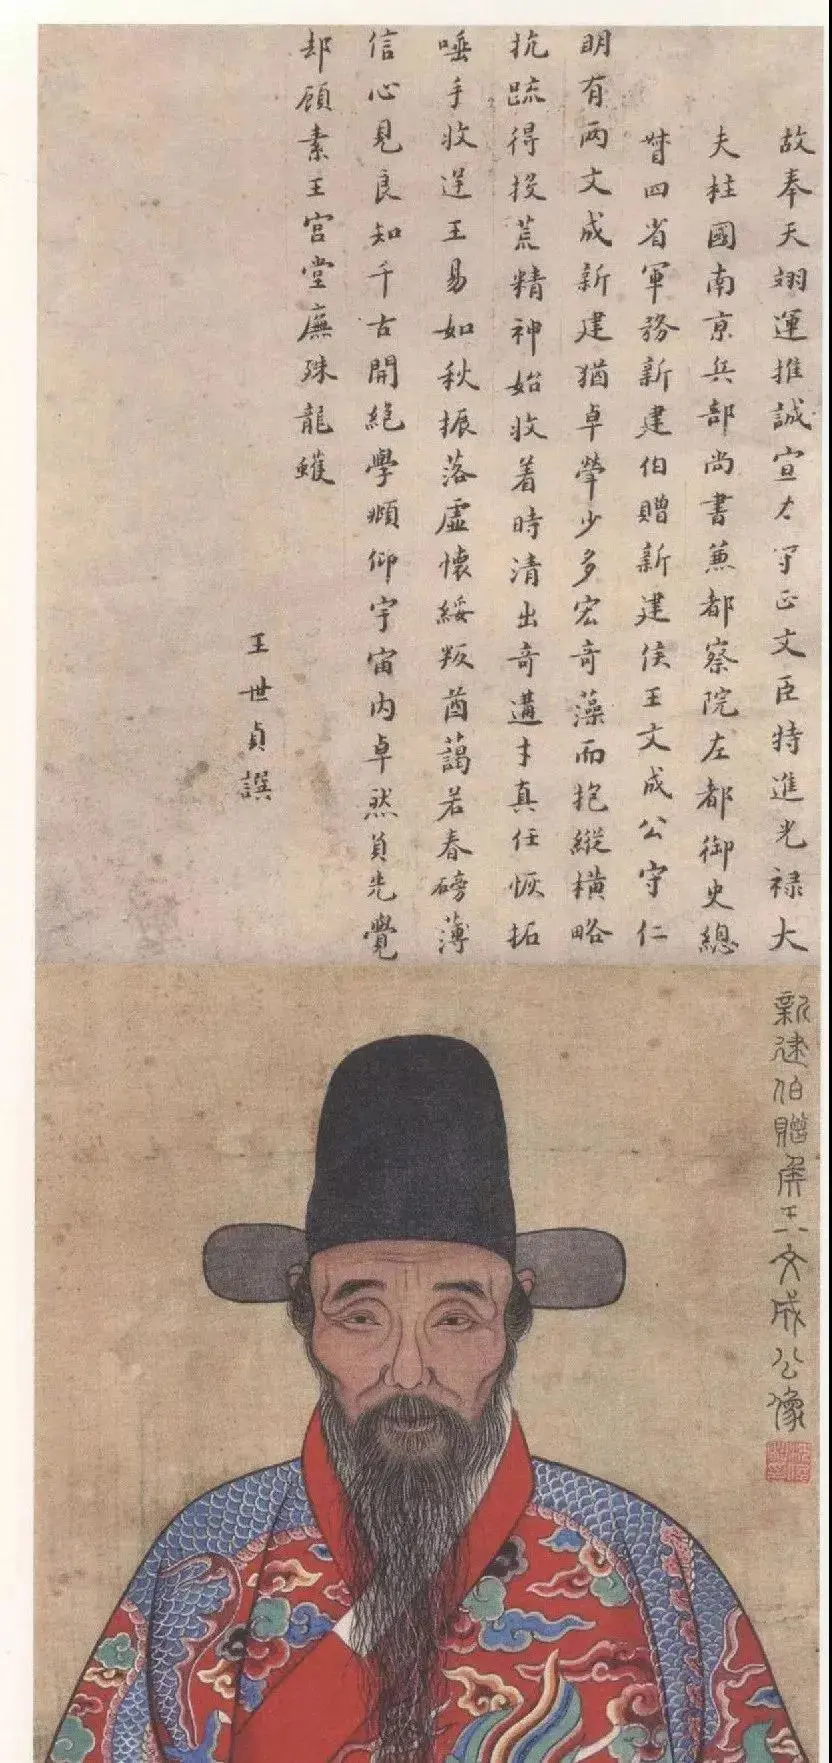 故奉天翊運推誠宣力守正文臣特進光祿大
夫柱國南京兵部尚書兼都察院左都御史總
督四省軍務新建伯贈新建侯王文成公守仁
明有两文成新建猶卓犖少多宏奇藻而抱縱橫略
抗疏得投荒精神始收着時清出奇遘才真任恢拓
唾手收逆王易如秋振落虛懷綏叛酋藹若春磅薄
信心見良知千古開絕學頫仰宇宙內卓然負先覺
却顧素王宮堂廡殊龍蠖
王世貞譔
新建伯贈矦王文成公像